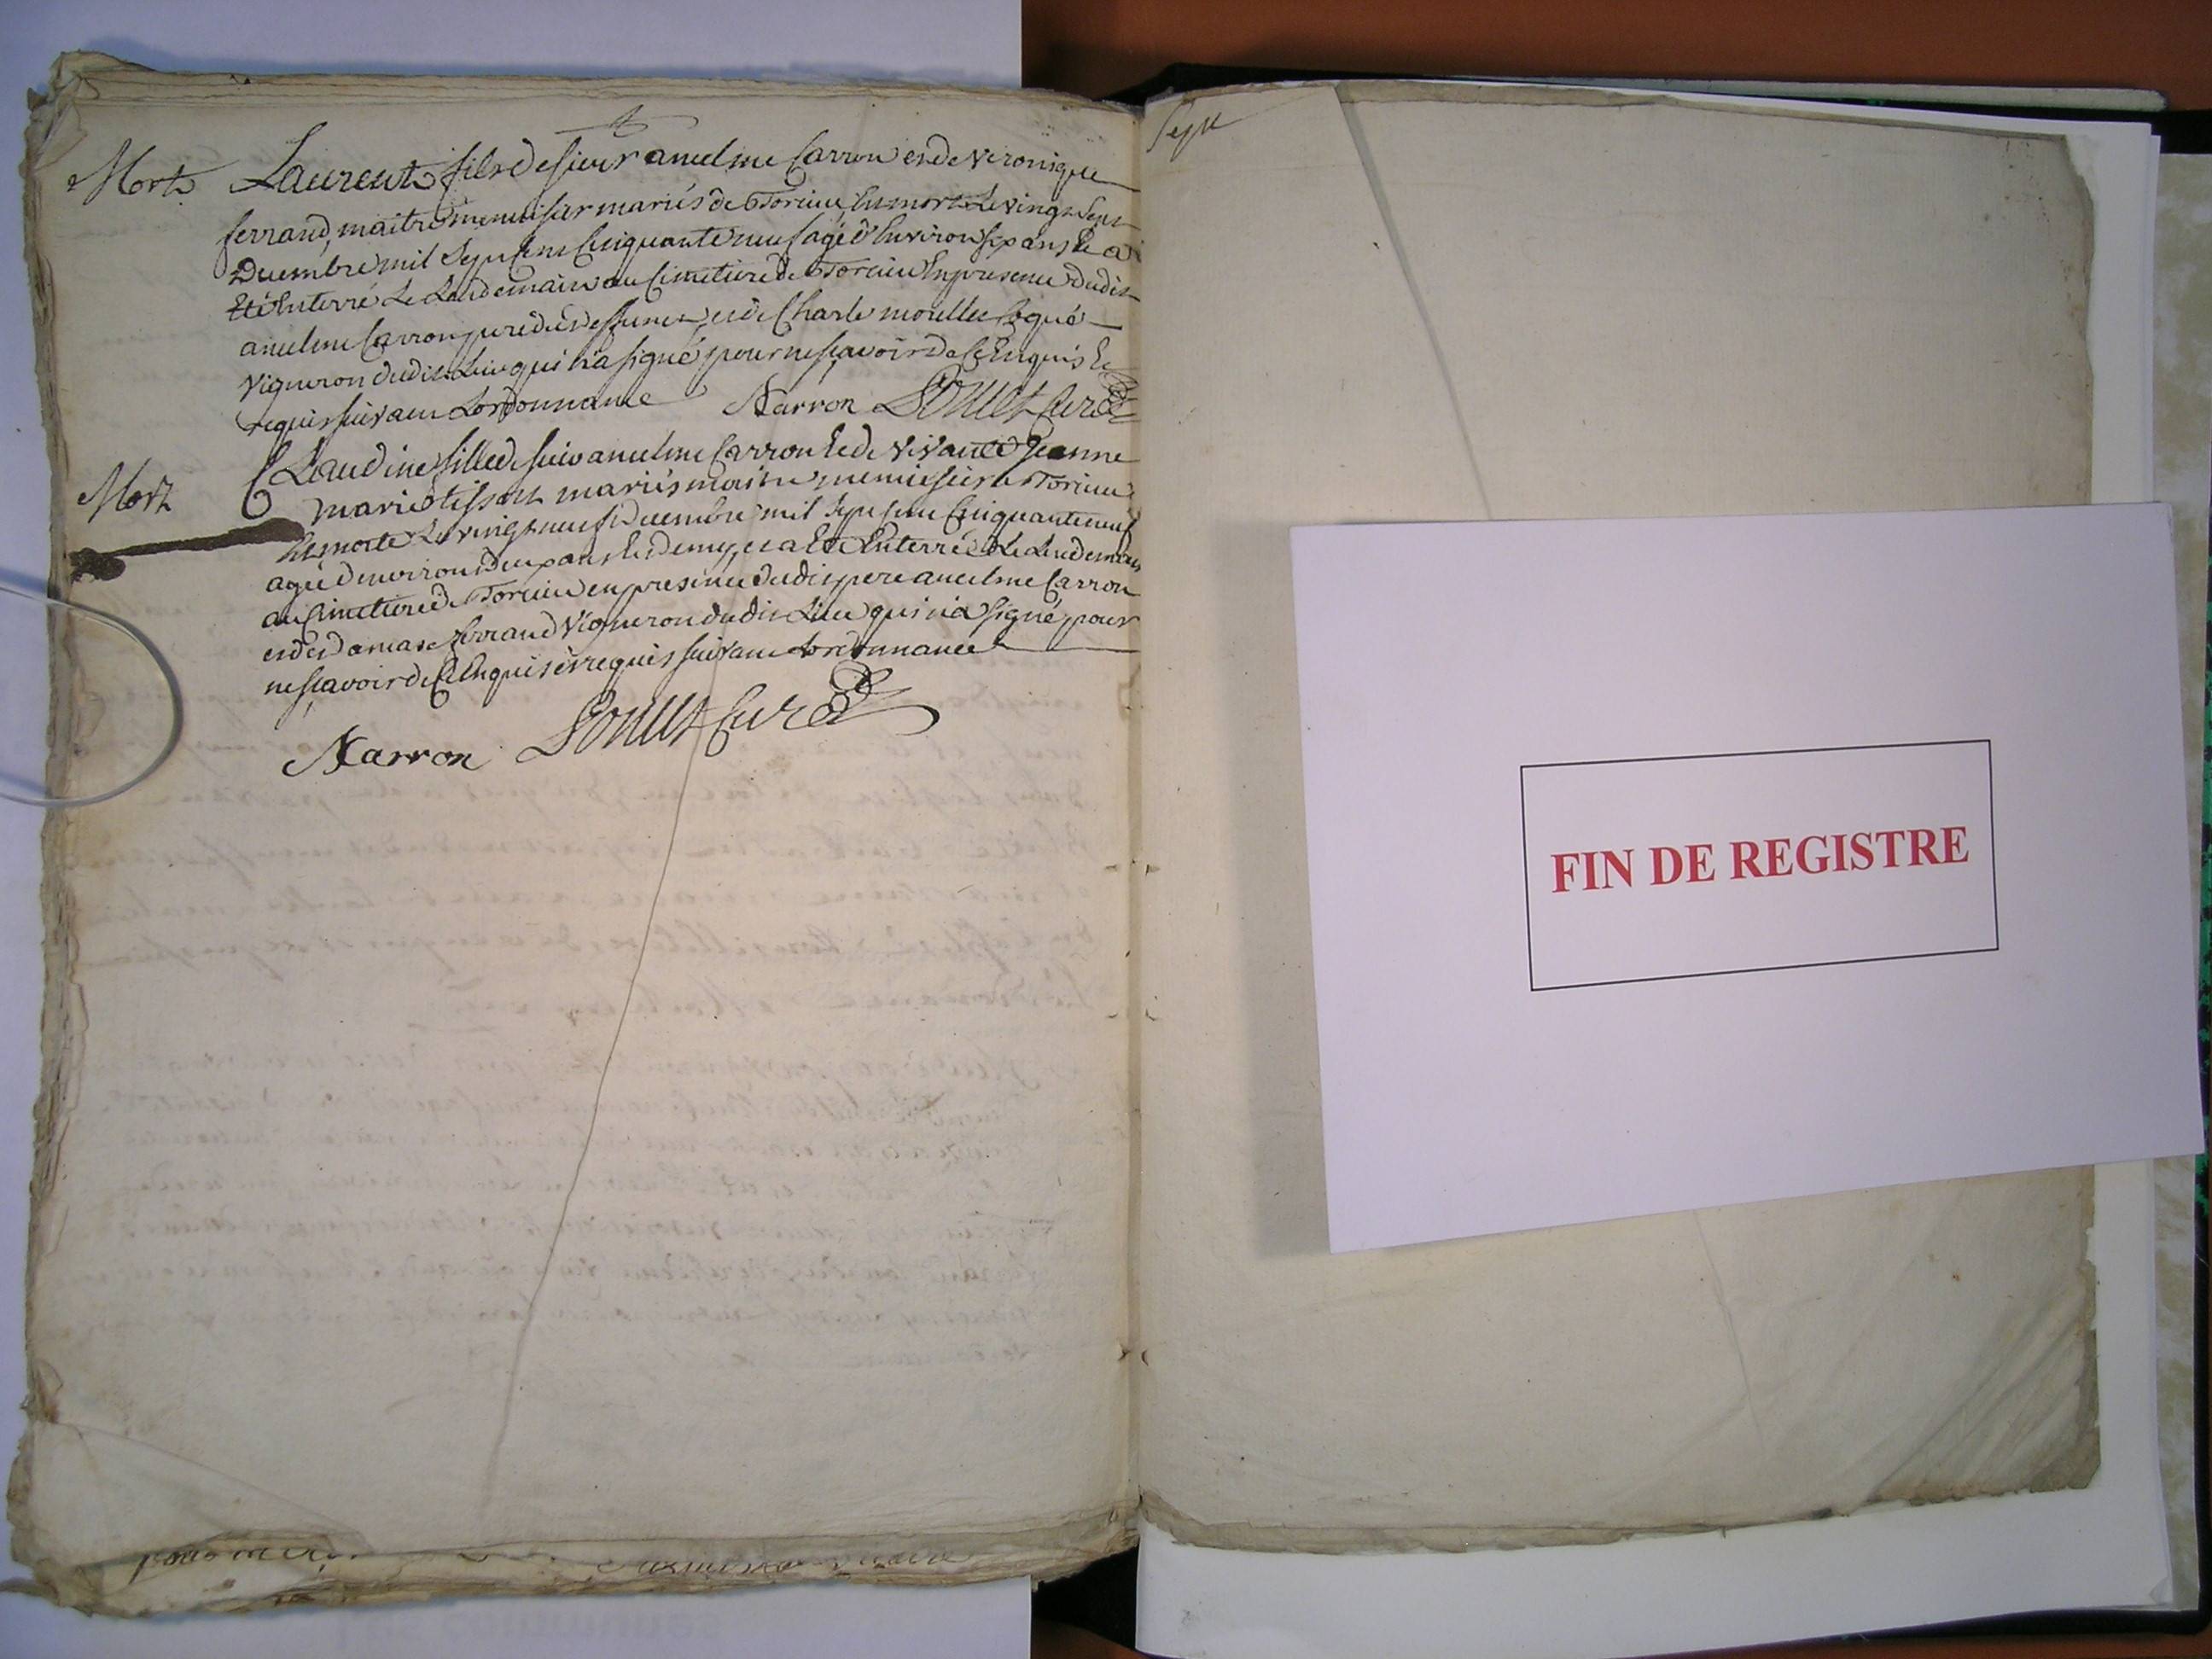 Mort Laurent fils de sieur ancelme Carron et de Veronique
ferrand, maitre menuisier mariés de Torcieu Est mort Le vingt Sept
Decembre mil Sept Cens Cinquante neuf agé d'Environ six ans Et a
Eté Enterré Le Lendemain au Cimetiere de Torcieu En presence dudit
ancelme Carron pere dudit deffunct, et de Charle
Vigneron dudit Lieu qui n'a signé pour ne sçavoir de Ce Enquis Et
requis suivant Lordonnance Acarron Curé
Mort Claudine fille de sieur ancelme Carron Et de vivante Jeanne
marie tissot mariés maitre menuisier a Torcieu
Est morte Le vingt neuf Decembre mil Sept Cens Cinquante neuf
agée d'environ deux ans Et demy, et a Eté Enterrée Le Lendemain
au Cimetiere de Torcieu en presence dudit pere ancelme Carron
et de damase ferrand Vigneron dudit Lieu qui n'a Signé, pour
ne sçavoir de Ce Enquis et requis suivant Lordonnance
Acarron Curé
Sept
FIN DE REGISTRE